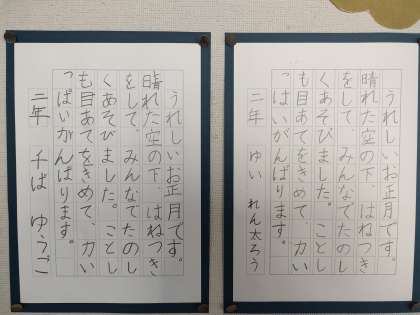 うれしいお正月です。
晴れた空の下、はねつき
をして、みんなでたのし
くあそびました。ことし
も目あてをきめて、力い
っぱいがんばります。
二年 ゆい れん太ろう
うれしいお正月です。
晴れた空の下、はねつき
をして、みんなでたのし
くあそびました。ことし
も目あてをきめて、力い
っぱいがんばります。
二年 千ば ゆうご